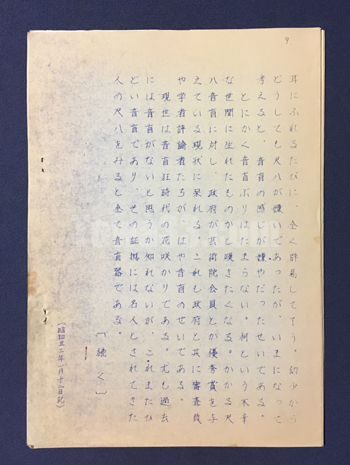 9
耳にふれるたびに、全く辟易してしてう。幼少から
どうしても尺八が嫌であったが、いまになって
考えると、音盲の感じが嫌やだったせいである。
とにかく音盲ぶりはたまらない。何という不幸
な世間に生れたものかと嘆きたくなる。かかる尺
八音盲に対し、政府が芸術院会員とか優秀賞を与
えている現状に呆れる。これも政府と共に審査員
や学者評論者たちがはや音盲のせいである。
現世は音盲狂時代の花咲かりである。尤も過去
には音盲がないと思うか知れないが、これまたひ
どい音盲であり、その証拠には名人とされてきた
人の尺八をみると全て音盲器である。
〔続く〕
（昭和五二年一月十二日記）